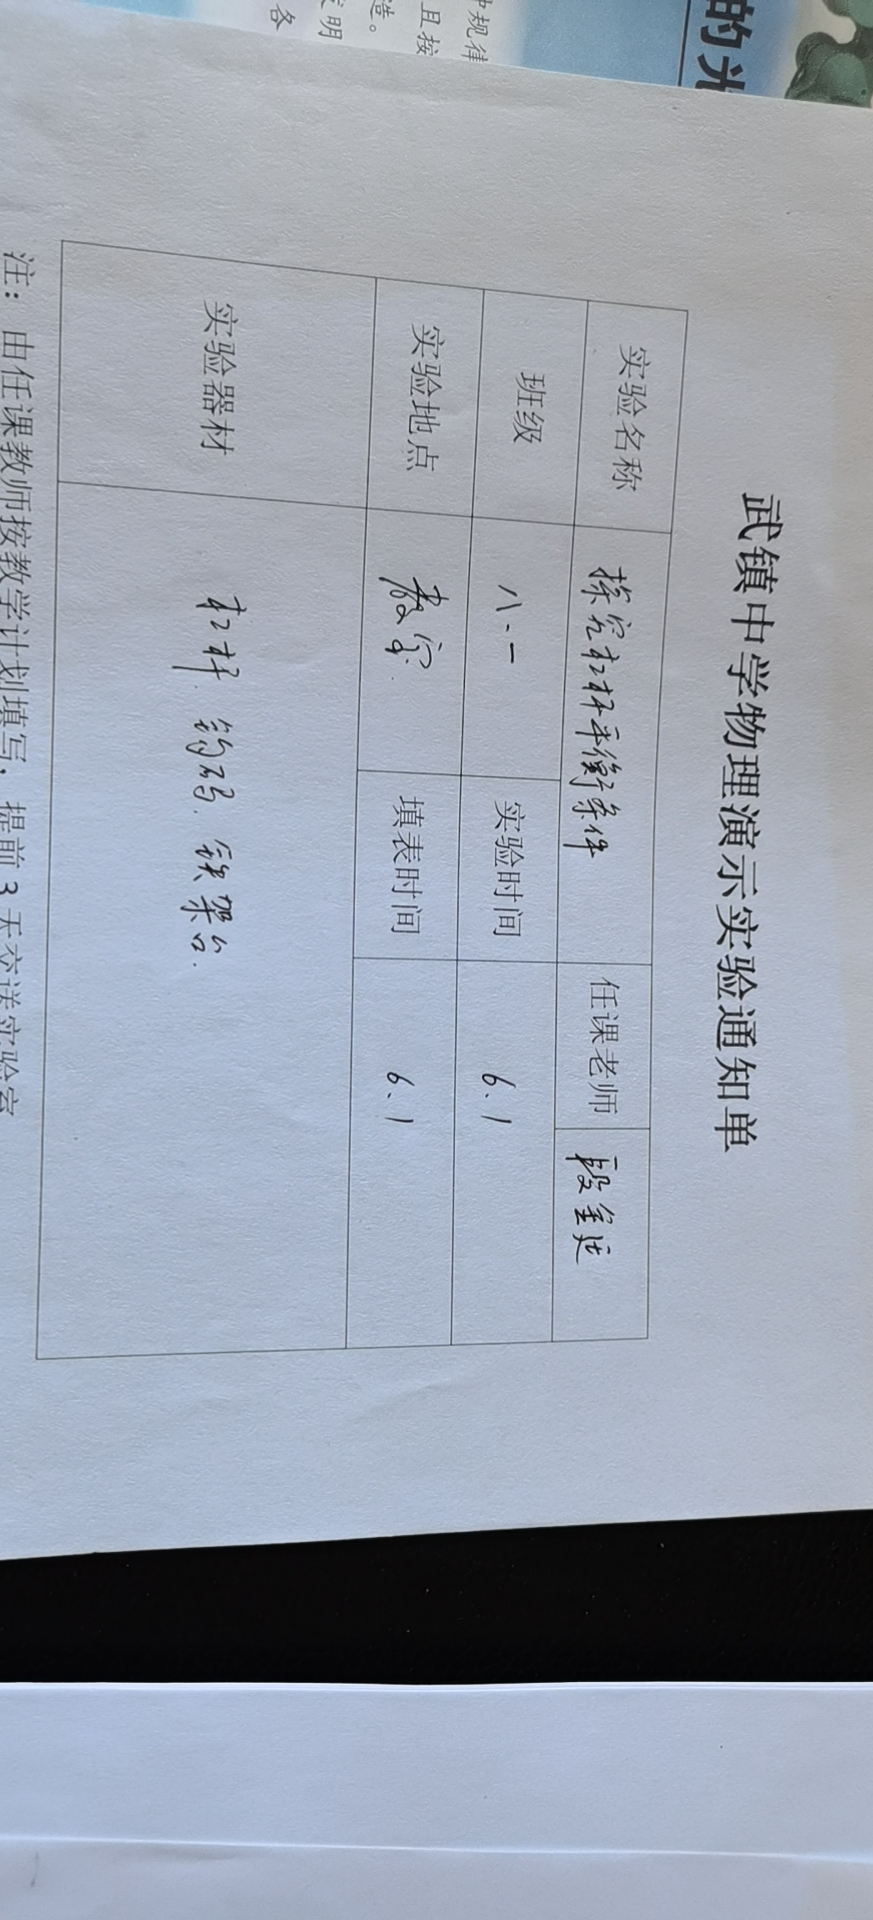 的光
规律
且按
造。
明
各
武镇中学物理演示实验通知单
实验名称 探究杠杆平衡条件 任课老师 段金廷
班级 八、一 实验时间 6、1
实验地点 教室. 填表时间 6、1
实验器材 杠杆. 钩码. 铁架台.
注：由任课教师按教学计划填写，提前3天交送实验室